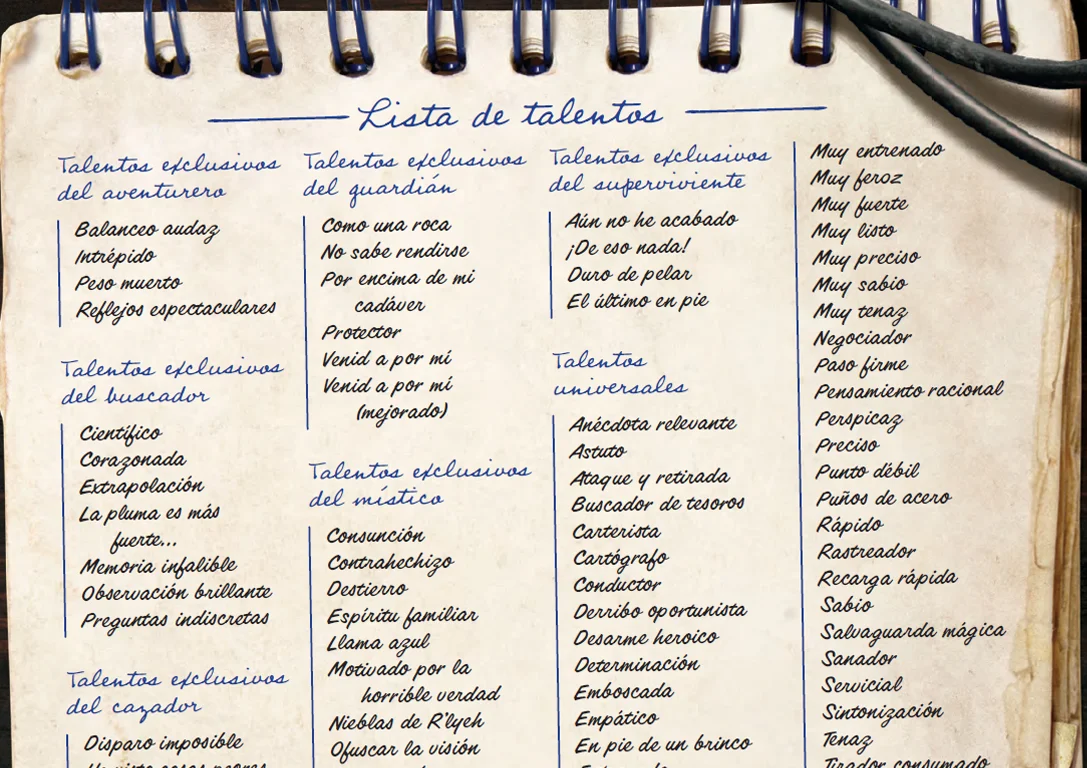 Lista de talentos
Talentos exclusivos
del aventurero
Balanceo audaz
Intrépido
Peso muerto
Reflejos espectaculares
Talentos exclusivos
del buscador
Científico
Corazonada
Extrapolación
La pluma es más
fuerte...
Memoria infalible
Observación brillante
Preguntas indiscretas
Talentos exclusivos
del cazador
Disparo imposible
Talentos exclusivos
del guardián
Como una roca
No sabe rendirse
Por encima de mi
cadáver
Protector
Venid a por mí
Venid a por mí
(mejorado)
Talentos exclusivos
del místico
Consunción
Contrahechizo
Destierro
Espíritu familiar
Llama azul
Motivado por la
horrible verdad
Nieblas de R'lyeh
Ofuscar la visión
Talentos exclusivos
del superviviente
Aún no he acabado
¡De eso nada!
Duro de pelar
El último en pie
Talentos
universales
Anécdota relevante
Astuto
Ataque y retirada
Buscador de tesoros
Carterista
Cartógrafo
Conductor
Derribo oportunista
Desarme heroico
Determinación
Emboscada
Empático
En pie de un brinco
Muy entrenado
Muy feroz
Muy fuerte
Muy listo
Muy preciso
Muy sabio
Muy tenaz
Negociador
Paso firme
Pensamiento racional
Perspicaz
Preciso
Punto débil
Puños de acero
Rápido
Rastreador
Recarga rápida
Sabio
Salvaguarda mágica
Sanador
Servicial
Sintonización
Tenaz
Tirador consumado